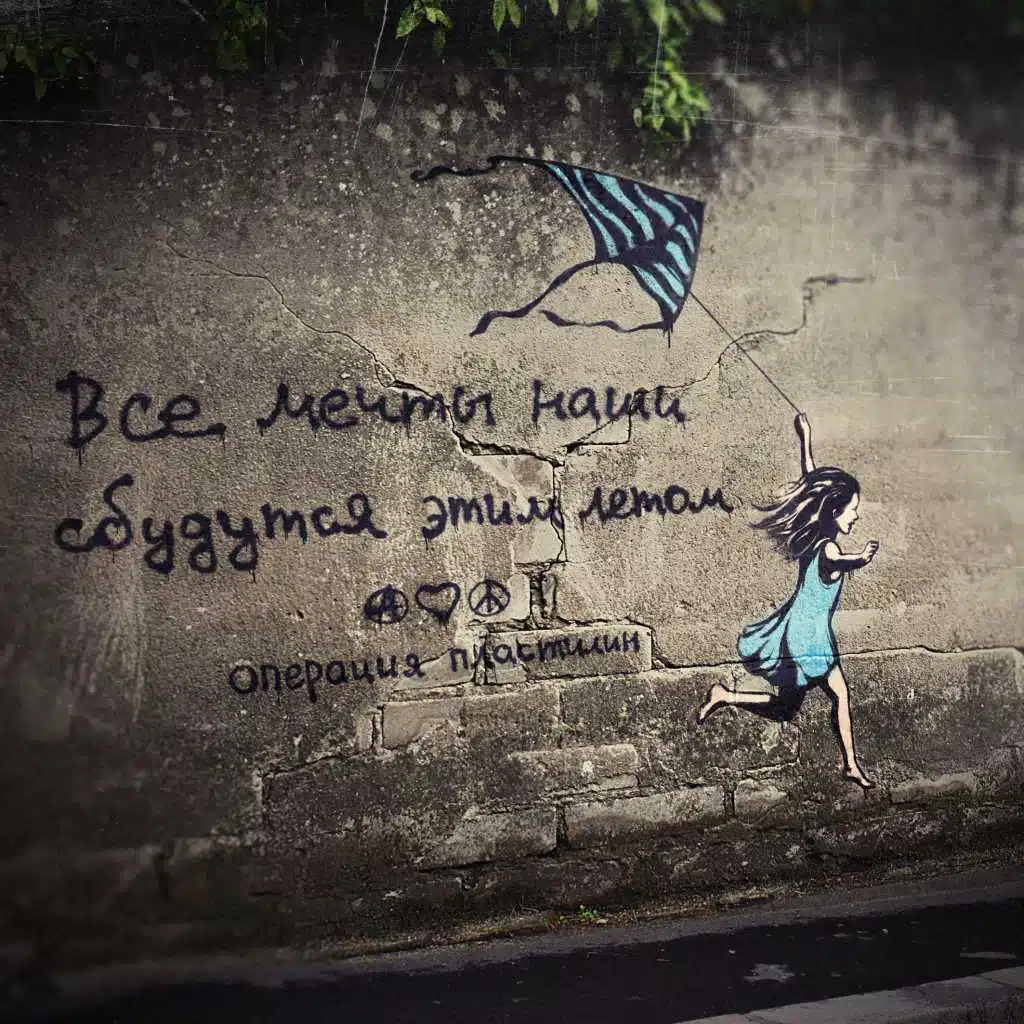 Все мечты наши
сбудутся этим летом
Ⓐ♡☮
операция пластилин